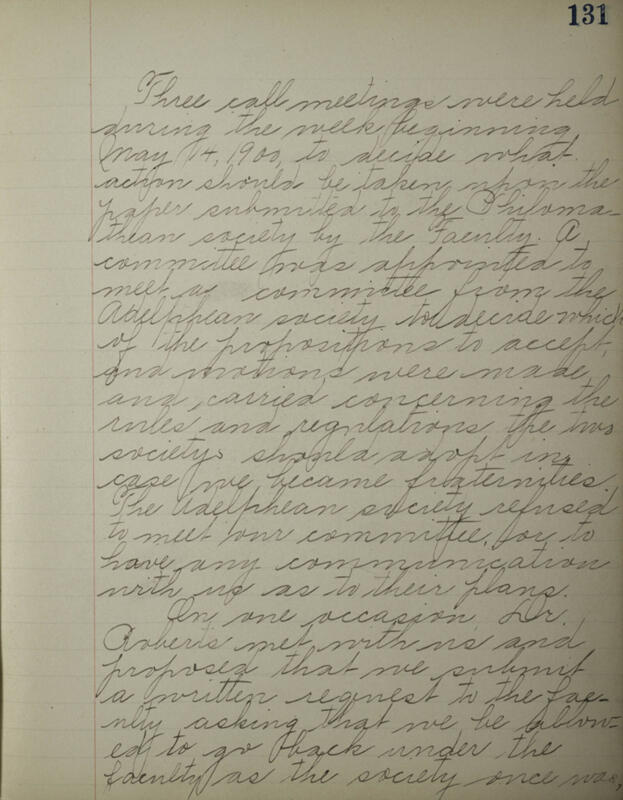 131
Three call meetings were held
during the week beginning
May 14, 1900, to decide what
action should be taken upon the
paper submitted to the Philoma-
thean society by the Faculty. A
committee was appointed to
meet a committee from the
Adelphean society to decide which
of the propositions to accept,
and motions were made
and carried concerning the
rules and regulations the two
societys should adopt in
case we became fraternities.
The Adelphean society refused
to meet our committee, or to
have any communication
with us as to their plans.
On one occasion Dr.
Roberts met with us and
proposed that we submit
a written request to the fac-
ulty asking that we be allow-
ed to go back under the
faculty as the society once was,